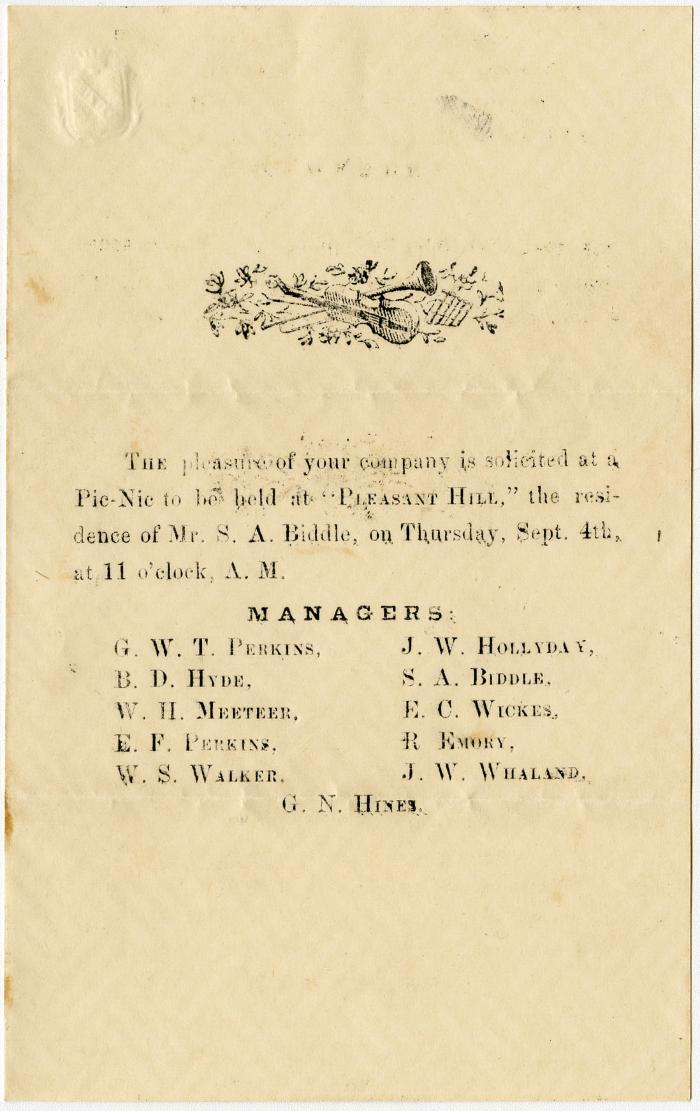 THE pleasure of your company is solicited at a
Pic-Nic to be held at "PLEASANT HILL," the resi-
dence of Mr. S. A. Biddle, on Thursday, Sept. 4th,
at 11 o'clock, A. M.
MANAGERS:
G. W. T. PERKINS, J. W. HOLLYDAY,
B. D. HYDE, S. A. BIDDLE,
W. H. MEETEER, E. C. WICKES,
E. F. PERKINS, R EMORY,
W. S. WALKER, J. W. WHALAND,
G. N. HINES.